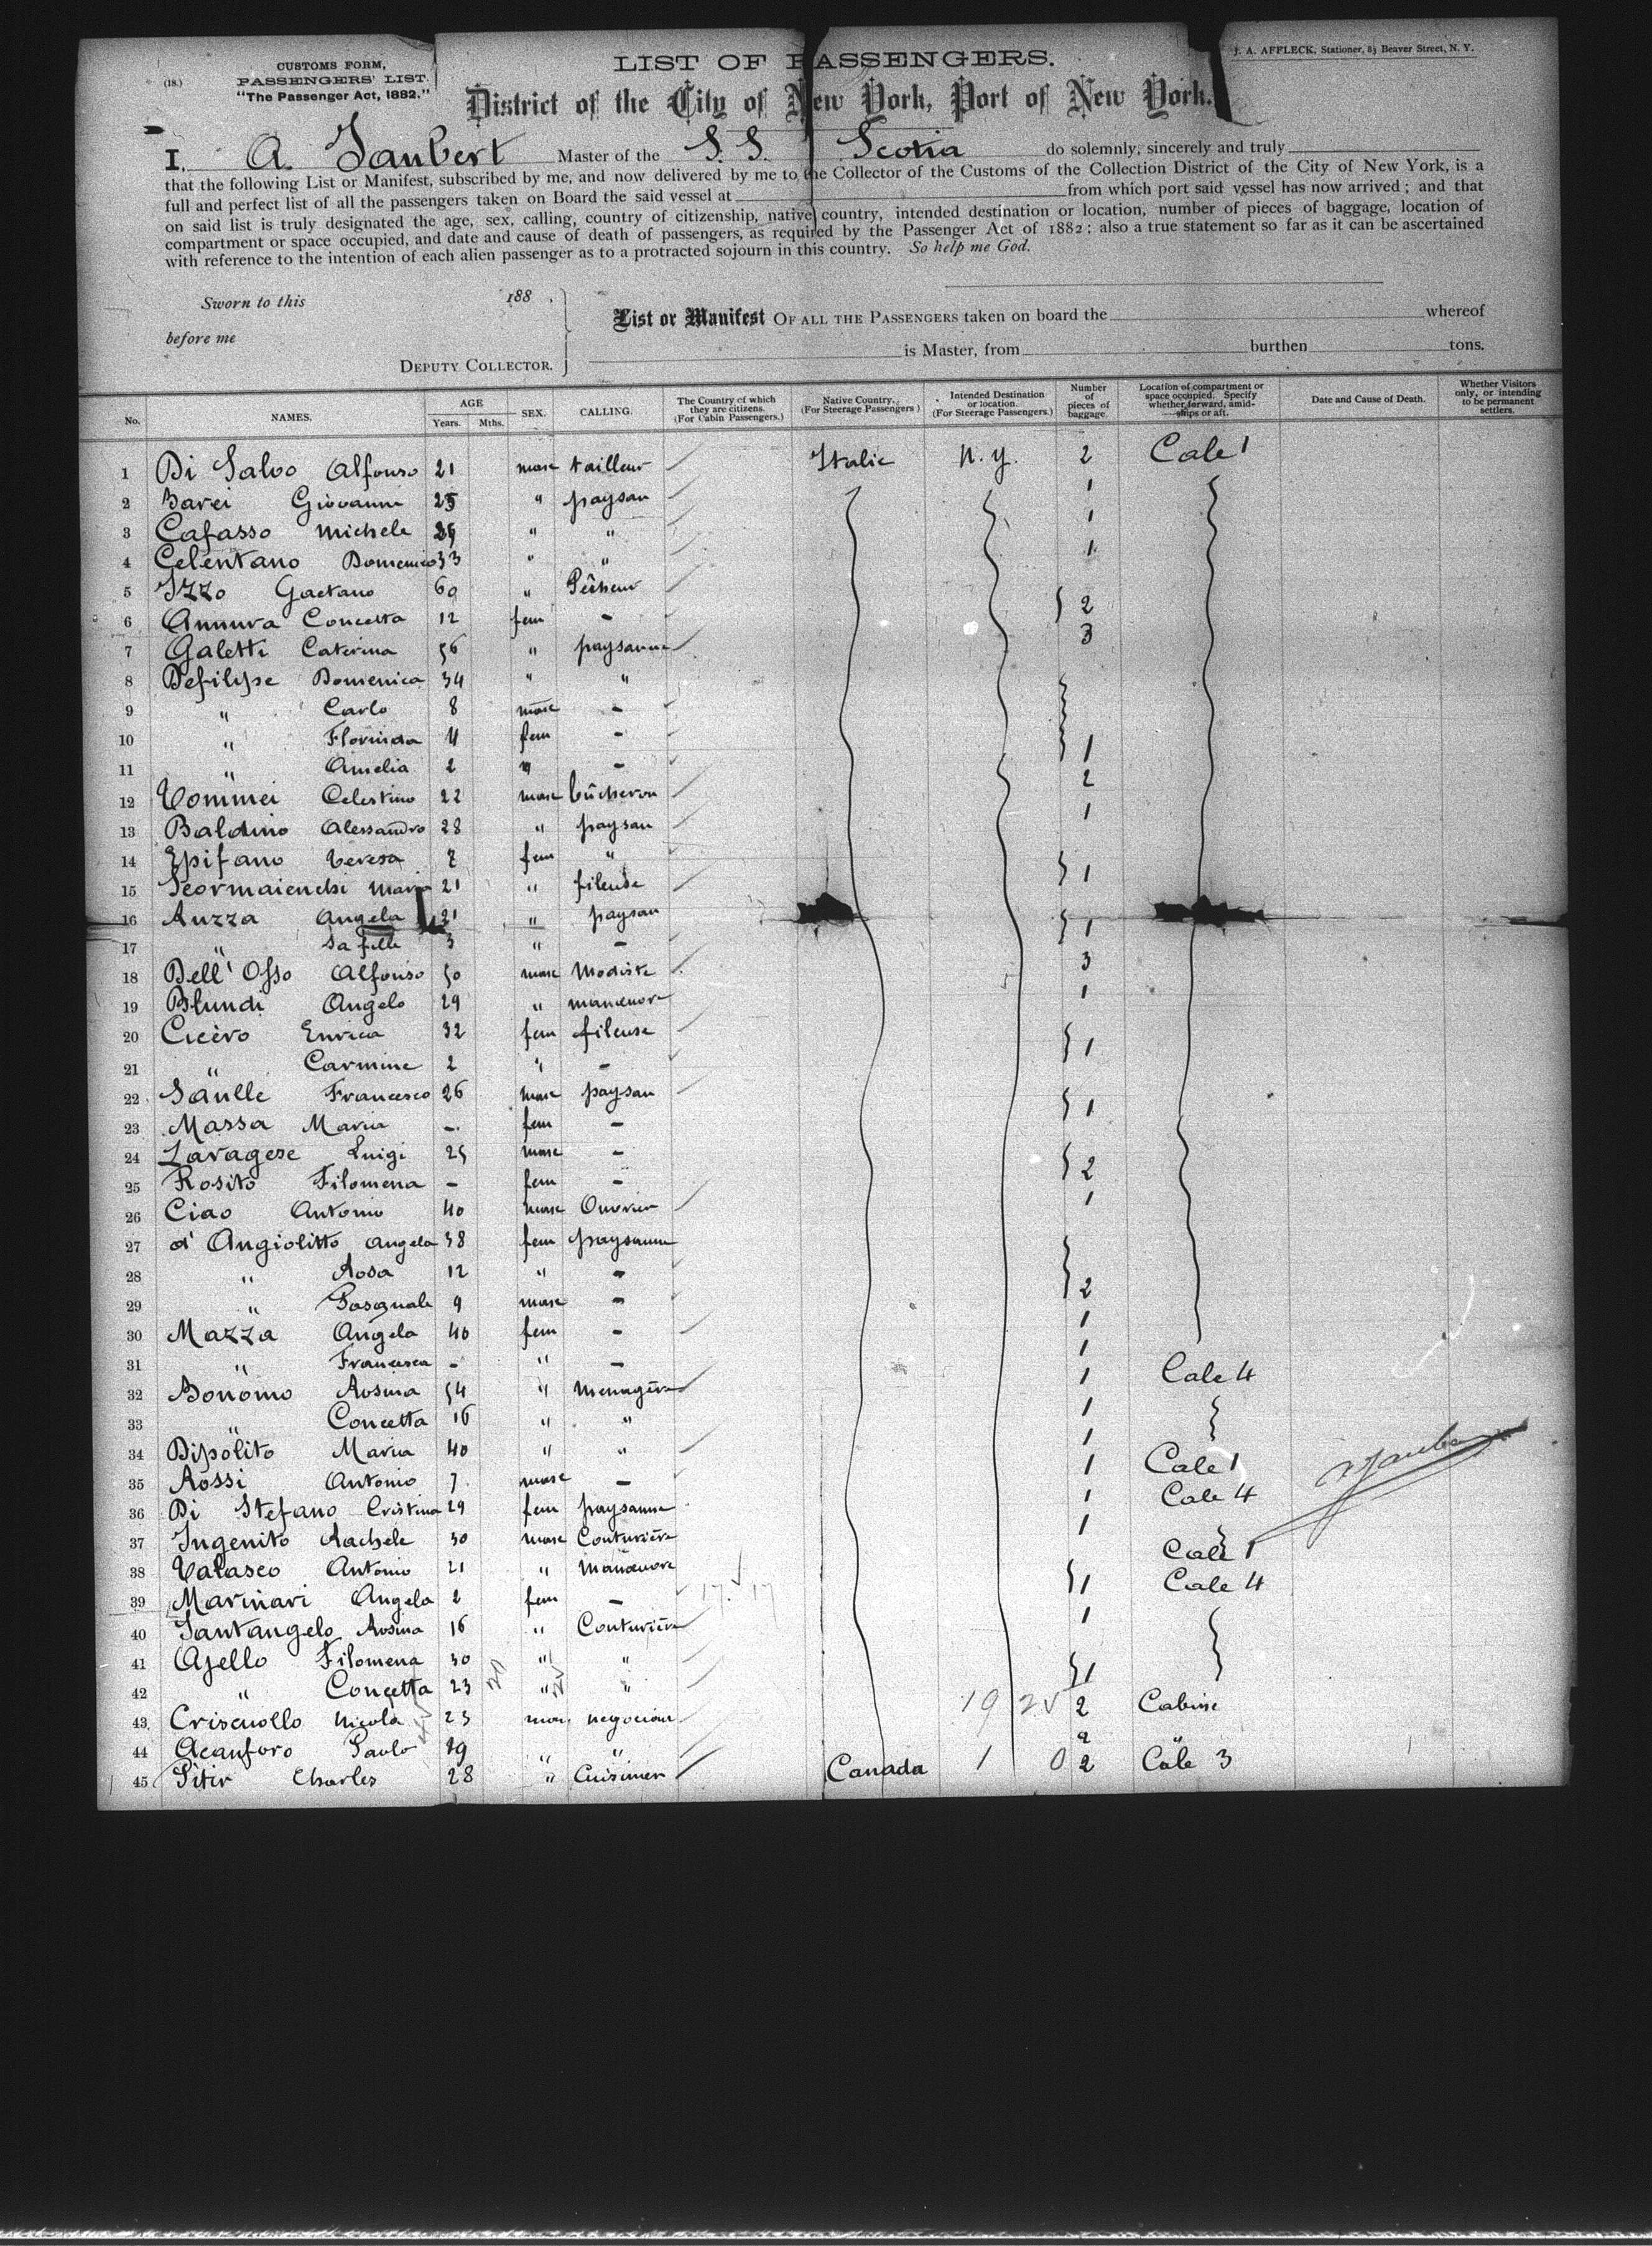 (18.)
CUSTOMS FORM,
PASSENGERS' LIST.
"The Passenger Act, 1882."
J. A. AFFLECK, Stationer, 83 Beaver Street, N. Y.
LIST OF PASSENGERS.
District of the City of New York, Port of New York.
I, A. Jaubert Master of the S. S. Scotia do solemnly, sincerely and truly
that the following List or Manifest, subscribed by me, and now delivered by me to the Collector of the Customs of the Collection District of the City of New York, is a
full and perfect list of all the passengers taken on Board the said vessel at from which port said vessel has now arrived; and that
on said list is truly designated the age, sex, calling, country of citizenship, native country, intended destination or location, number of pieces of baggage, location of
compartment or space occupied, and date and cause of death of passengers, as required by the Passenger Act of 1882; also a true statement so far as it can be ascertained
with reference to the intention of each alien passenger as to a protracted sojourn in this country. So help me God.
Sworn to this 188 .
before me
DEPUTY COLLECTOR.
List or Manifest OF ALL THE PASSENGERS taken on board the whereof
is Master, from burthen tons.
No. NAMES. AGE Years. Mths. SEX. CALLING. The Country of which they are citizens. (For Cabin Passengers.) Native Country. (For Steerage Passengers) Intended Destination or location. (For Steerage Passengers.) Number of pieces of baggage. Location of compartment or space occupied. Specify whether forward, amidships or aft. Date and Cause of Death. Whether Visitors only, or intending to be permanent settlers.
1 Di Salvo Alfonso 21 masc tailleur Italie N. Y. 2 Cale 1
2 Giovanni 25 " paysan 1
3 Cafasso Michele " " 1
4 Celentano Domenico 33 " " 1
5 Izzo Gaetano 60 " Pêcheur
6 Annura Concetta 12 fem - 2
7 Galetti Caterina 56 " paysanne 3
8 Defilipe Domenica 34 " "
9 " Carlo 8 masc -
10 " Florinda 4 fem -
11 " Amelia 2 " - 1
12 Tommei Celestino 22 masc bûcheron 2
13 Baldino Alessandro 28 " paysan 1
14 Epifano Teresa fem "
15 Maria 21 " fileuse 1
16 Auzza Angela 21 " paysan
17 " Sa fille 3 " - 1
18 Dell' Osso Alfonso 50 masc Modiste 3
19 Blundi Angelo 29 " manœuvre 1
20 Cicèro Enrica 32 fem fileuse
21 " Carmine 2 " - 1
22 Saulle Francesco 26 masc paysan
23 Massa Maria - fem - 1
24 Lavagese Luigi 25 masc -
25 Rosito Filomena - fem - 2
26 Ciao Antonio 40 masc Ouvrier 1
27 d' Angiolitto Angela 38 fem paysanne
28 " Rosa 12 " -
29 " Pasquale 9 masc - 2
30 Mazza Angela 40 fem - 1
31 " Francesca - " - 1
32 Bonomo Rosina 54 " Menagère 1 Cale 4
33 " Concetta 16 " " 1
34 Dipolito Maria 40 " " 1
35 Rossi Antonio 7 masc - 1 Cale 1
36 Di Stefano Cristina 29 fem paysanne 1 Cale 4
37 Ingenito Rachele 30 masc Couturière 1
38 Valasco Antonio 21 " Manœuvre Cale 1
39 Marinari Angela 2 fem - 1 Cale 4
40 Santangelo Rosina 16 " Couturière 1
41 Ajello Filomena 30 " "
42 " Concetta 23 " " 1
43 Criscuollo Nicola 23 masc negociant 2 Cabine
44 Acanforo Paolo 19 " " 2 "
45 Pitir Charles 28 " Cuisinier Canada 2 Cale 3
A Jaubert
17 17
19 2
1 0
20